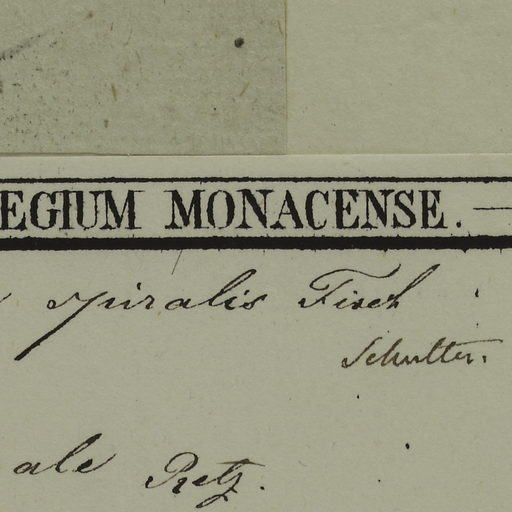 EGIUM MONACENSE.
spiralis Fisch
Schultes.
ale Retz.